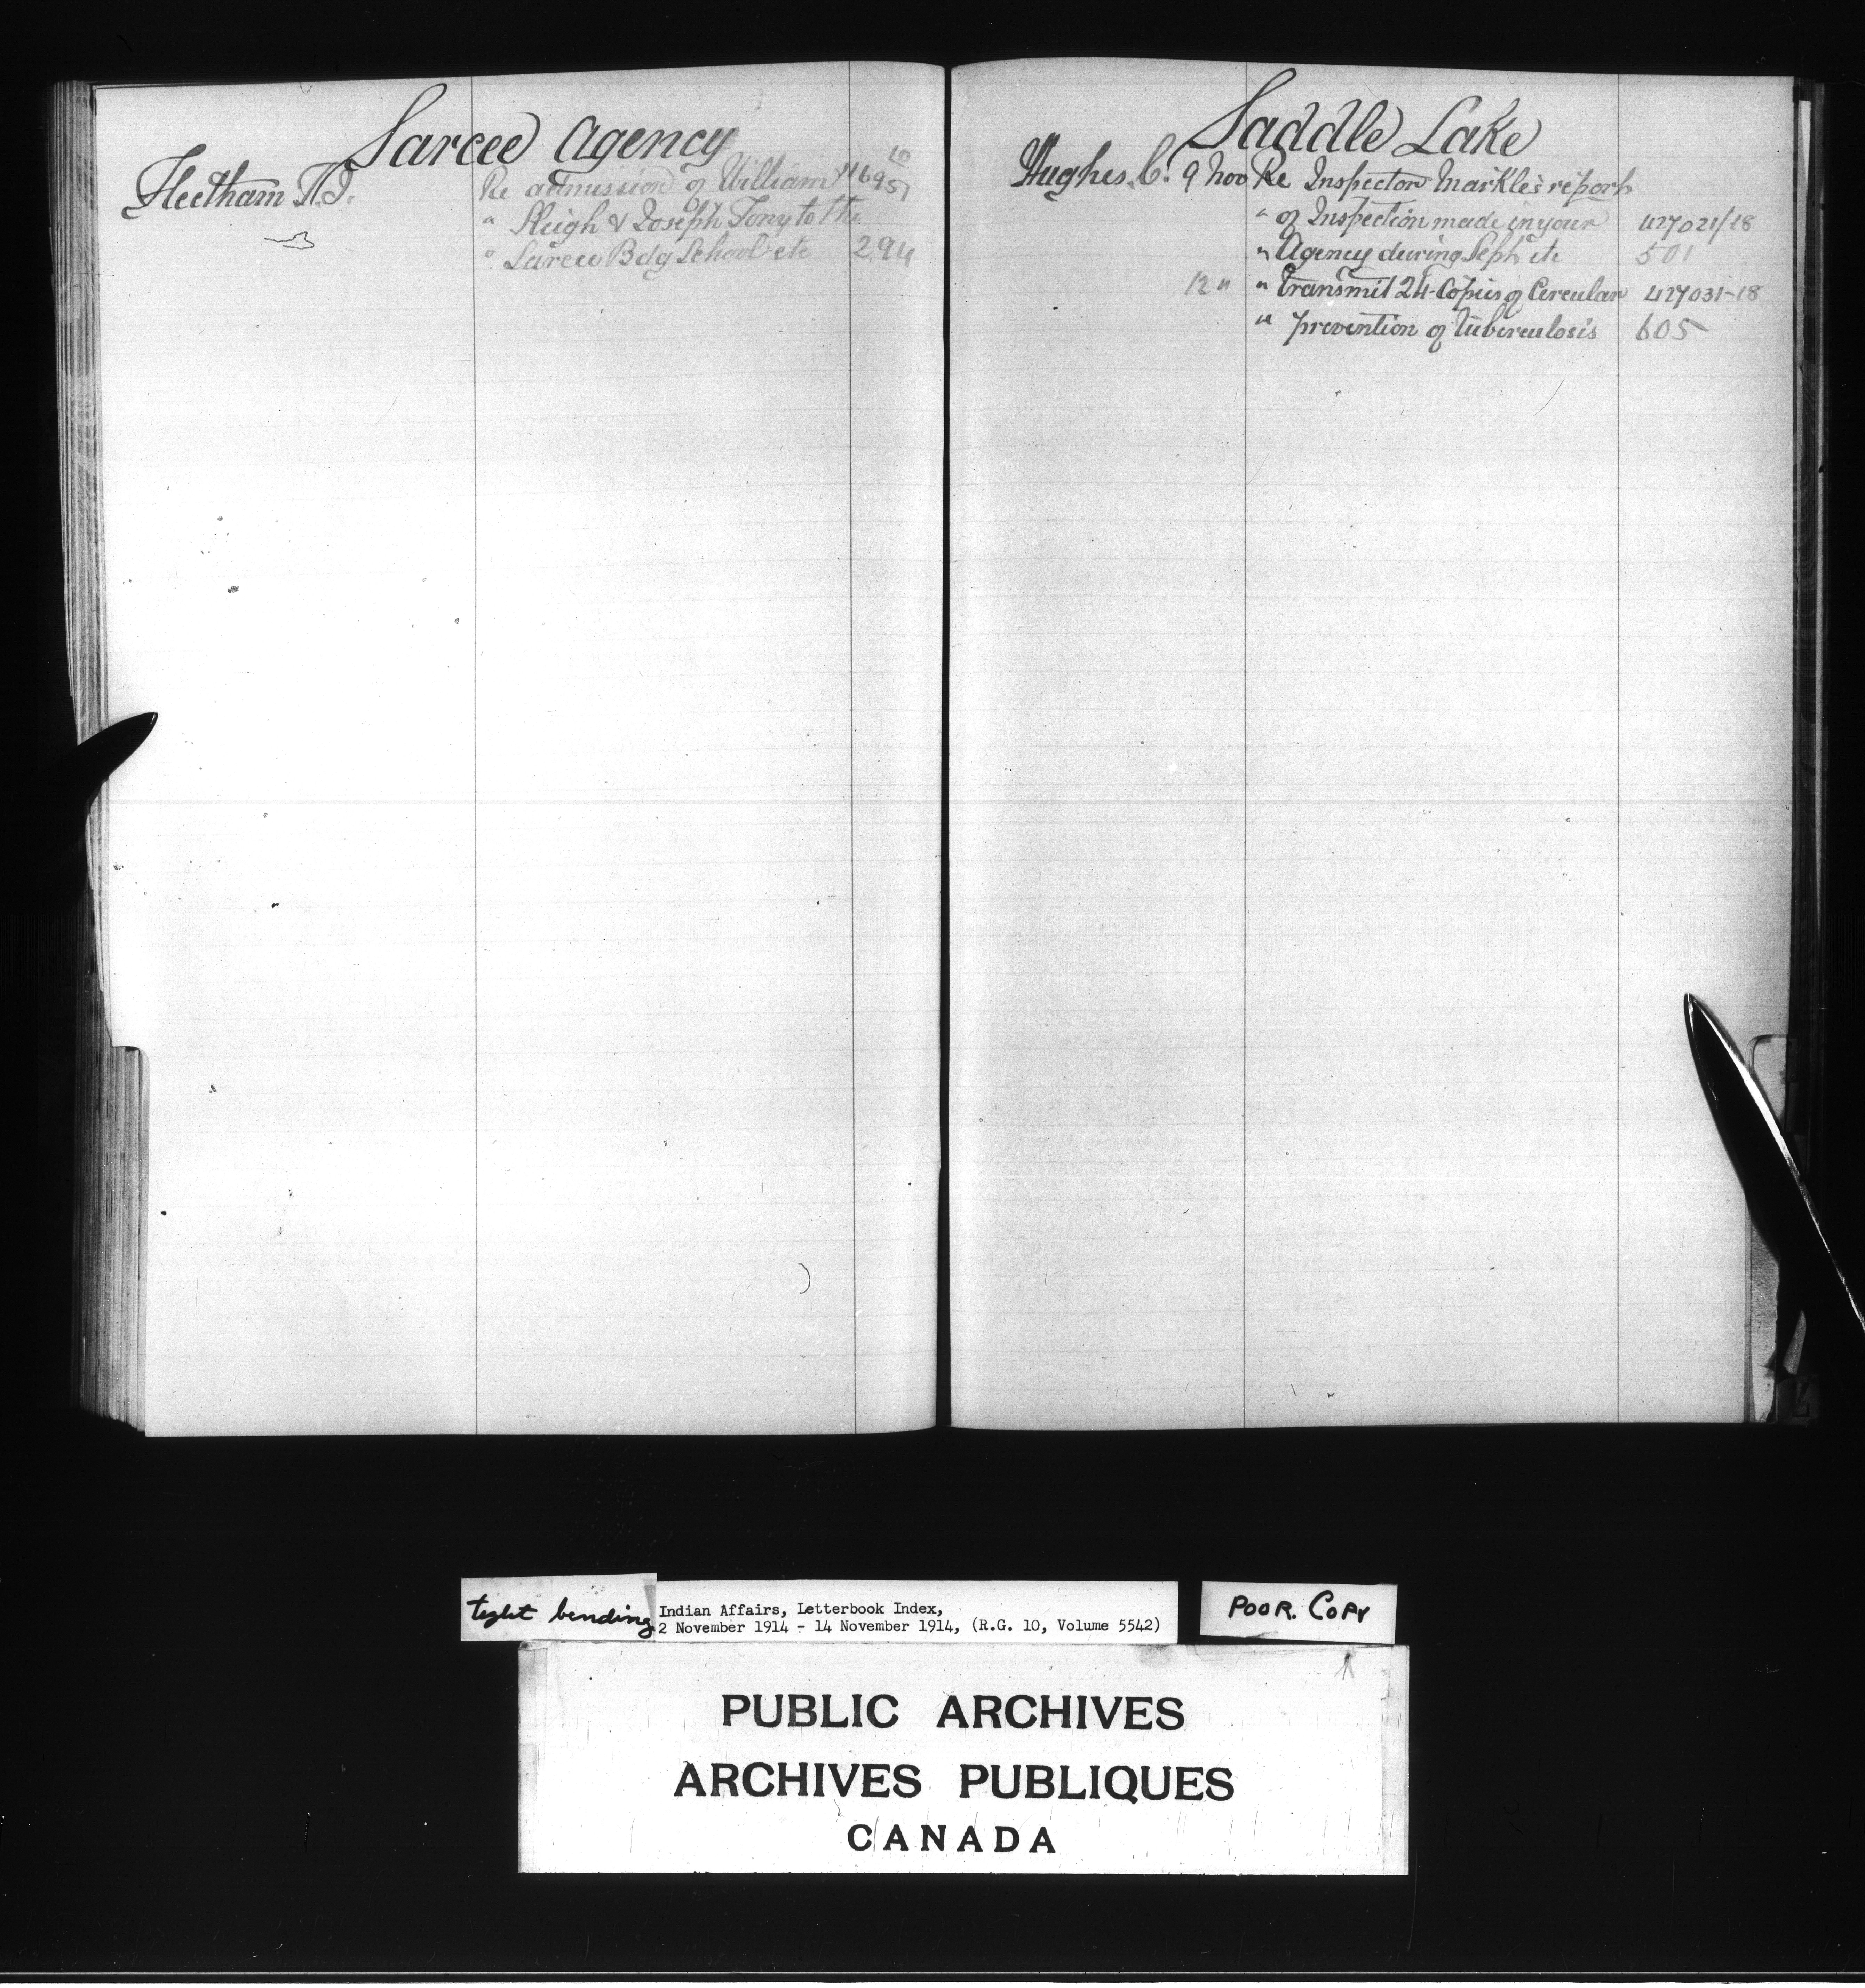 Sarcee Agency
Fleetham T.J. Re admission of William
" Sleigh & Joseph Tony to the
" Sarcee Bdg School etc 294
Saddle Lake
Hughes C. 9 Nov Re Inspector Markle's report
" of Inspection made in your 427021/18
" Agency during Sept etc 501
12 " " Transmit 24 Copies of Circular 427031-18
" prevention of Tuberculosis 605
tight bending
Indian Affairs, Letterbook Index,
2 November 1914 - 14 November 1914, (R.G. 10, Volume 5542)
POOR. COPY
PUBLIC ARCHIVES
ARCHIVES PUBLIQUES
CANADA